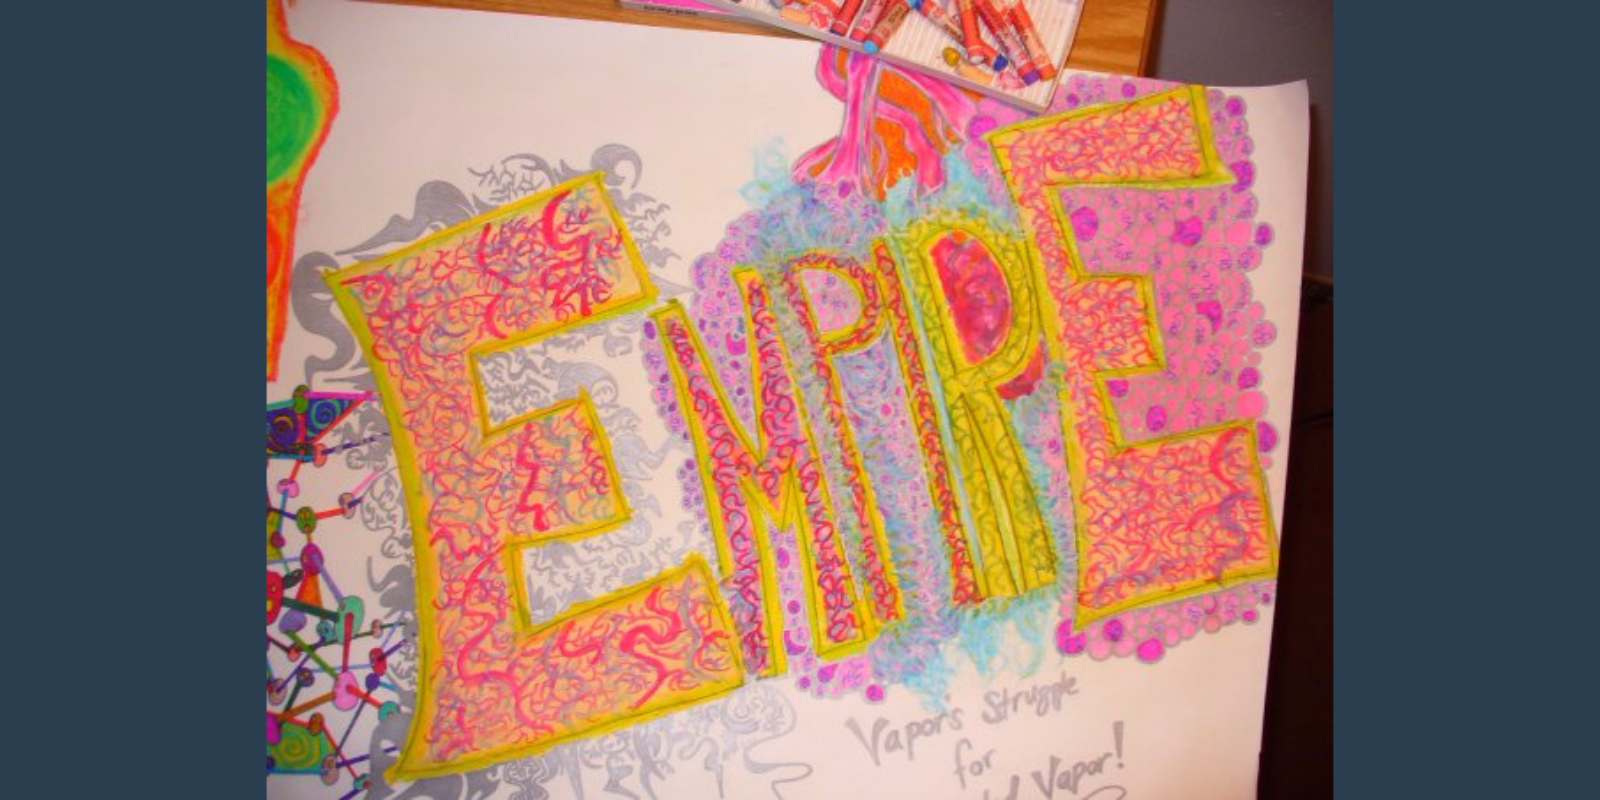 EMPIRE
Vapors Struggle
for
Vapor!